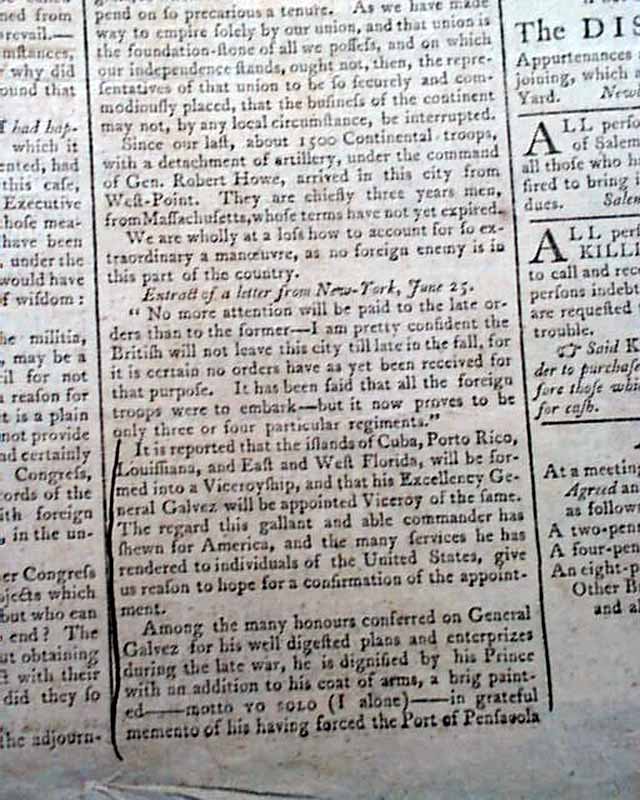 ned from
prevail.—
mstances,
why did
ound that
I had hap-
which it
ented, had
this case,
Executive
those mea-
have been
, under the
would have
of wisdom :
he militia,
, may be a
cil for not
a reason for
t is a plain
not provide
nd certainly
Congreſs,
cords of the
ith foreign
, in the un-
er Congreſs
ojects which
but who can
end? The
ut obtaining
ct with their
did they ſo
the adjourn-
pend on ſo precarious a tenure. As we have made
way to empire ſolely by our union, and that union is
the foundation-ſtone of all we poſſeſs, and on which
our independence ſtands, ought not, then, the repre-
ſentatives of that union to be ſo ſecurely and com-
modiouſly placed, that the buſineſs of the continent
may not, by any local circumſtance, be interrupted.
Since our laſt, about 1500 Continental troops,
with a detachment of artillery, under the command
of Gen. Robert Howe, arrived in this city from
Weſt-Point. They are chiefly three years men,
from Maſſachuſetts, whoſe terms have not yet expired.
We are wholly at a loſs how to account for ſo ex-
traordinary a manœuvre, as no foreign enemy is in
this part of the country.
Extract of a letter from New-York, June 25.
" No more attention will be paid to the late or-
ders than to the former—I am pretty confident the
Britiſh will not leave this city till late in the fall, for
it is certain no orders have as yet been received for
that purpoſe. It has been ſaid that all the foreign
troops were to embark—but it now proves to be
only three or four particular regiments."
It is reported that the iſlands of Cuba, Porto Rico,
Louiſſiana, and Eaſt and Weſt Florida, will be for-
med into a Viceroyſhip, and that his Excellency Ge-
neral Galvez will be appointed Viceroy of the ſame.
The regard this gallant and able commander has
ſhewn for America, and the many ſervices he has
rendered to individuals of the United States, give
us reaſon to hope for a confirmation of the appoint-
ment.
Among the many honours conferred on General
Galvez for his well digeſted plans and enterprizes
during the late war, he is dignified by his Prince
with an addition to his coat of arms, a brig paint-
ed——motto YO SOLO (I alone)——in grateful
memento of his having forced the Port of Penſavola
The DIS
Appurtenances
joining, which
Yard. Newb
ALL perſo
of Salem
all thoſe who h
ſired to bring i
dues. Salem
ALL perſ
KILLI
to call and rec
perſons indebt
are requeſted
trouble.
☞ Said K
der to purchaſe
fore thoſe whi
for caſh.
At a meeting
Agreed an
as follow
A two-pen
A four-pen
An eight-p
Other B
and al